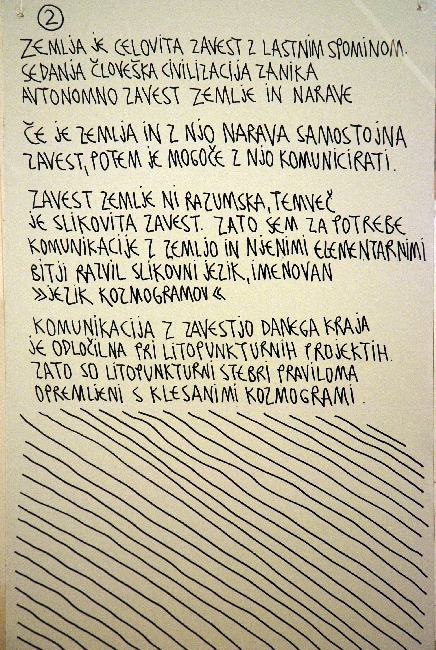 2
ZEMLJA JE CELOVITA ZAVEST Z LASTNIM SPOMINOM.
SEDANJA ČLOVEŠKA CIVILIZACIJA ZANIKA
AVTONOMNO ZAVEST ZEMLJE IN NARAVE
ČE JE ZEMLJA IN Z NJO NARAVA SAMOSTOJNA
ZAVEST, POTEM JE MOGOČE Z NJO KOMUNICIRATI.
ZAVEST ZEMLJE NI RAZUMSKA, TEMVEČ
JE SLIKOVITA ZAVEST. ZATO SEM ZA POTREBE
KOMUNIKACIJE Z ZEMLJO IN NJENIMI ELEMENTARNIMI
BITJI RAZVIL SLIKOVNI JEZIK, IMENOVAN
»JEZIK KOZMOGRAMOV«
KOMUNIKACIJA Z ZAVESTJO DANEGA KRAJA
JE ODLOČILNA PRI LITOPUNKTURNIH PROJEKTIH.
ZATO SO LITOPUNKTURNI STEBRI PRAVILOMA
OPREMLJENI S KLESANIMI KOZMOGRAMI.